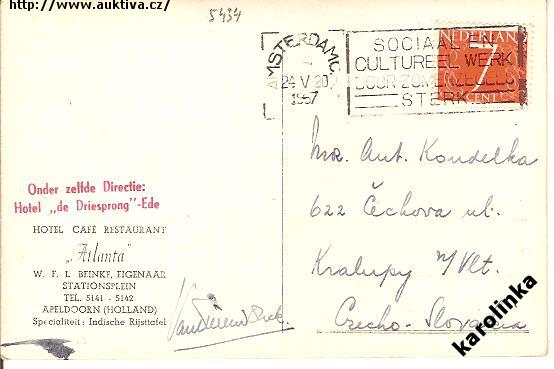 http://www.auktiva.cz/
5434
AMSTERDAM C.
24 V 20
1957
SOCIAAL EN
CULTUREEL WERK
DOOR ZOMERZEGELS
STERK
NEDERLAND
7
CENT
Onder zelfde Directie:
Hotel „de Driesprong"-Ede
HOTEL CAFÉ RESTAURANT
„Atlanta"
W. F. L. BEINKE, EIGENAAR
STATIONSPLEIN
TEL. 5141 - 5142
APELDOORN (HOLLAND)
Specialiteit: Indische Rijsttafel
Ant. Koudelka
622 Čechova ul.
Kralupy n/Vlt.
Czecho-Slovacia
karolinka